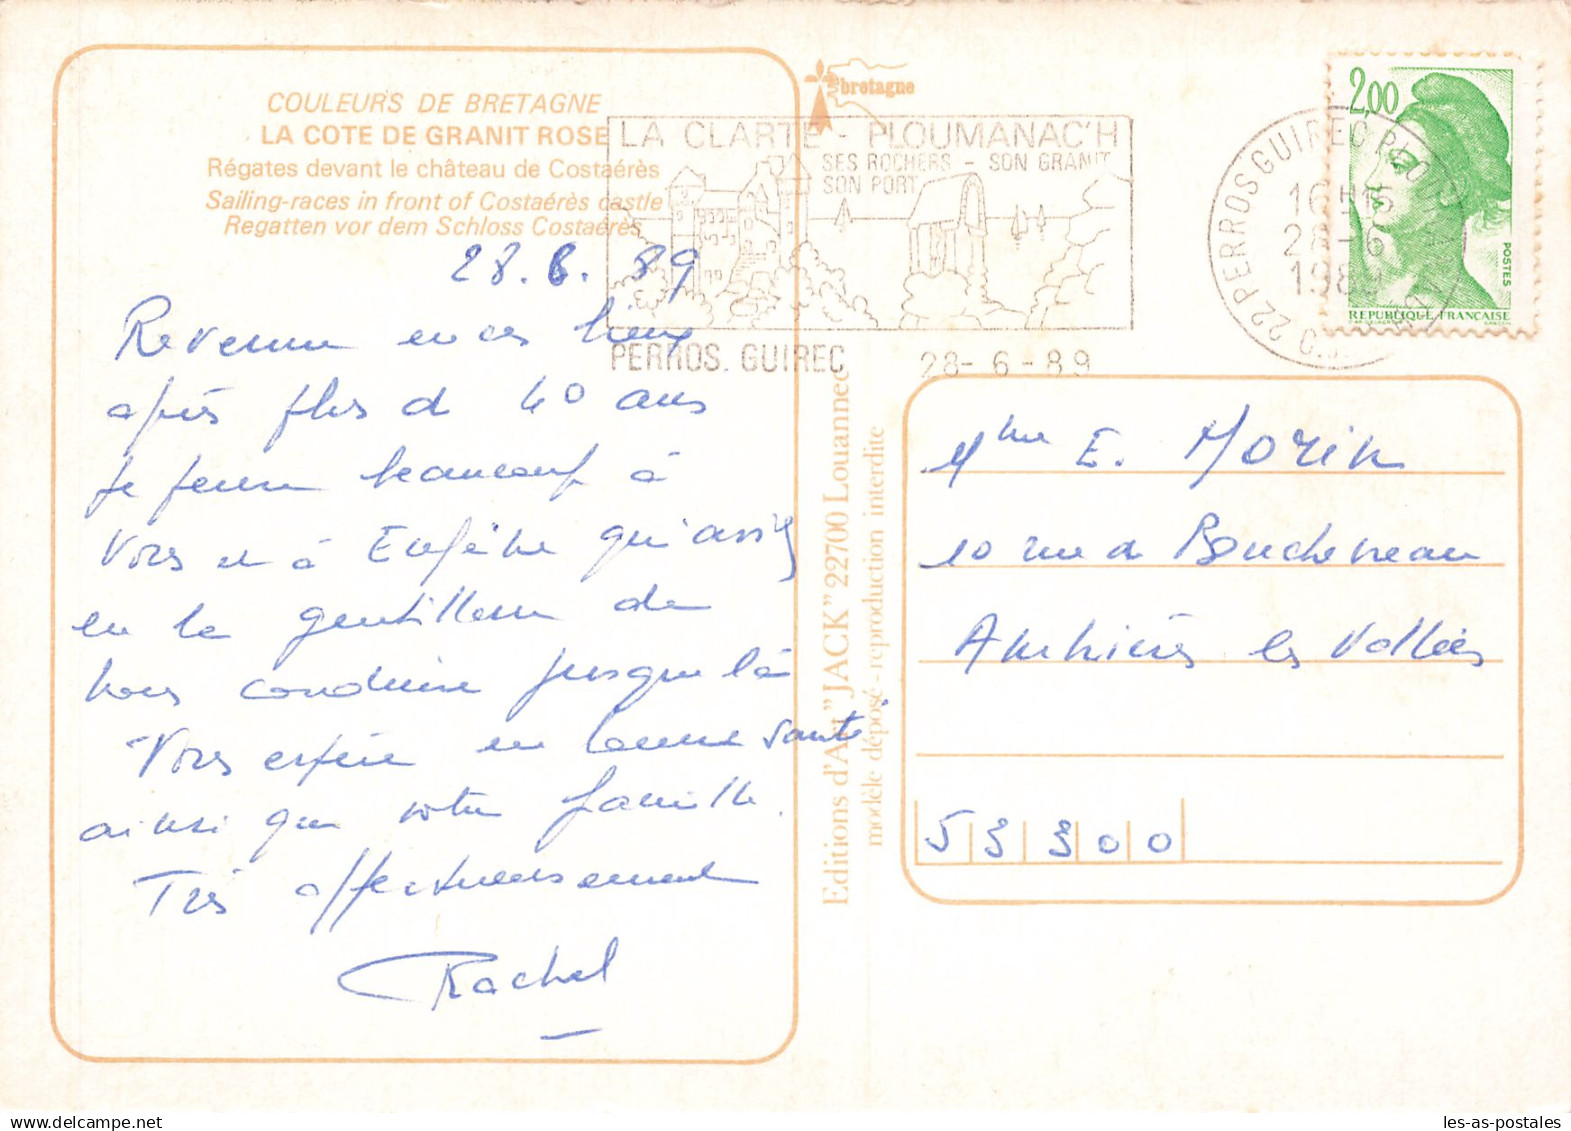 COULEURS DE BRETAGNE
LA COTE DE GRANIT ROSE
Régates devant le château de Costaérès
Sailing-races in front of Costaérès castle
Regatten vor dem Schloss Costaérès
28.6.89
Revenue en ces lieux
après plus de 40 ans
Je pense beaucoup à
Vous et à Eugène qui avais
eu la gentillesse de
nous conduire jusque là
Vous espère en bonne santé
ainsi que votre famille.
Très affectueusement
Rachel
bretagne
LA CLARTE - PLOUMANAC'H
SES ROCHERS - SON GRANIT
SON PORT
PERROS. GUIREC 28-6-89
22 PERROS GUIREC PLOUMANAC'H C.D.
16H15
28-6
1989
2,00
POSTES
REPUBLIQUE FRANCAISE
Editions d'Art "JACK" 22700 Louannec
modèle déposé-reproduction interdite
Mme E. Morin
10 rue de
Ambrières les Vallées
53300
les-as-postales